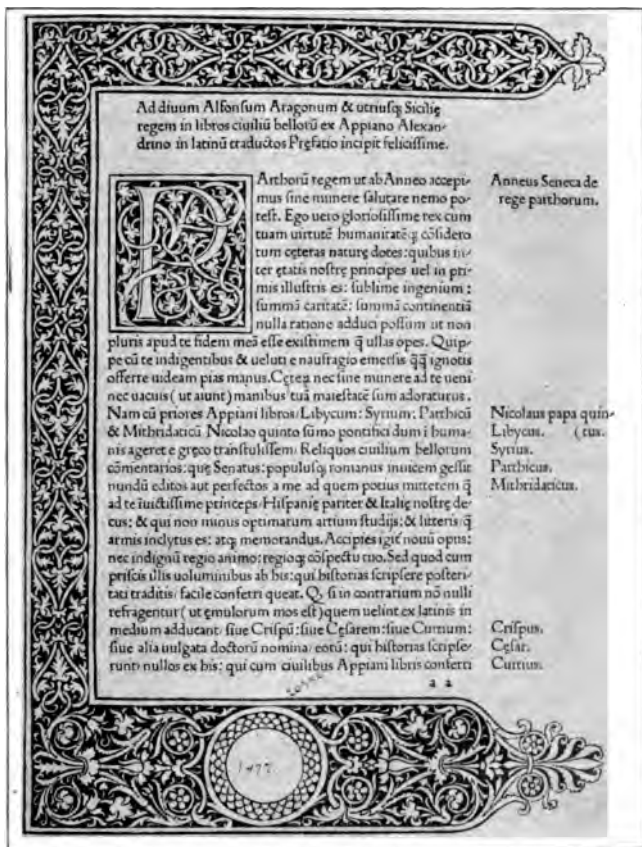 Ad diuum Alfonsum Aragonum & utriusq; Sicilię
regem in libros ciuiliū bellorū ex Appiano Alexan-
drino in latinū traductos Pręfatio incipit felicissime.
PArthorū regem ut ab Anneo accepi-
mus sine munere salutare nemo po-
test. Ego uero gloriosissime rex cum
tuam uirtutē humanitatēq; cōsidero
tum cęteras naturę dotes: quibus in-
ter ętatis nostrę principes uel in pri-
mis illustris es: sublime ingenium:
summā caritatē: summā continentiā
nulla ratione adduci possum ut non
pluris apud te fidem meā esse existimem q̄ ullas opes. Quip-
pe cū te indigentibus & ueluti e naufragio emersis q̄q̄ ignotis
offerre uideam pias manus. Cęterą nec sine munere ad te ueni
nec uacuis (ut aiunt) manibus tuā maiestatē sum adoraturus.
Nam cū priores Appiani libros/Libycum: Syrium: Parthicū
& Mithridaticū Nicolao quinto sūmo pontifici dum i huma-
nis ageret e gręco transtulissem: Reliquos ciuilium bellorum
cōmentarios: quę Senatus: populusq; romanus inuicem gessit
nundū editos aut perfectos a me ad quem potius mitterem q̄
ad te īuictissime princeps/Hispanię pariter & Italię nostrę de-
cus: & qui non minus optimarum artium studijs: & litteris q̄
armis inclytus es: atq; memorandus. Accipies igit̄ nouū opus:
nec indignū regio animo: regioq; cōspectu tuo. Sed quod cum
priscis illis uoluminibus ab his: qui historias scripsere posteri-
tati traditis/facile conferri queat. Q, si in contrarium nō nulli
refragentur (ut ęmulorum mos est) quem uelint ex latinis in
medium adducant/siue Crispū: siue Cęsarem: siue Curtium:
siue alia uulgata doctorū nomina/eorū: qui historias scripse-
runt/nullos ex his: qui cum ciuilibus Appiani libris conferri
a 2
Anneus Seneca de
rege parthorum.
Nicolaus papa quin-
Libycus. (tus.
Syrius.
Parthicus.
Mithridaticus.
Crispus.
Cęsar.
Curtius.
1477